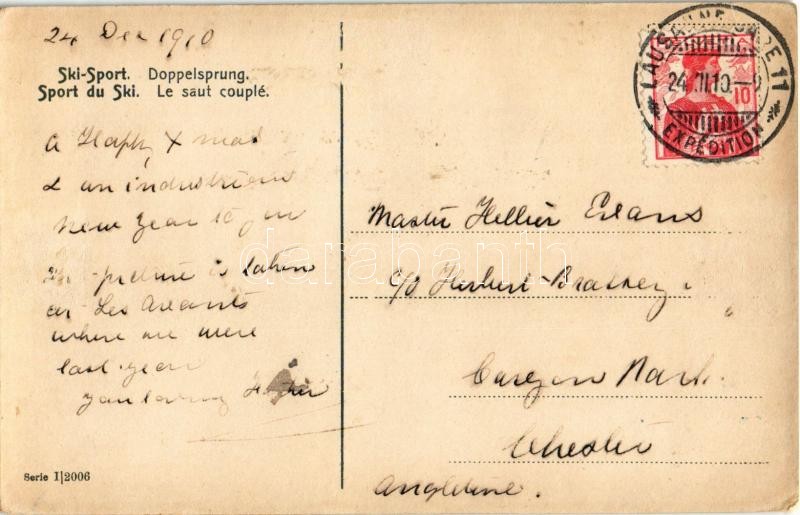 24 Dec 1910
Ski-Sport. Doppelsprung.
Sport du Ski. Le saut couplé.
A Happy Xmas
& an industrious
New Year to you
picture is taken
at Les Avants
where we were
last year
your loving
Serie I|2006
LAUSANNE GARE 11
24.II.10.
EXPÉDITION
10
Master Hellier Evans
c/o Herbert
Curzon Park
Chester
Angleterre.
darabanth